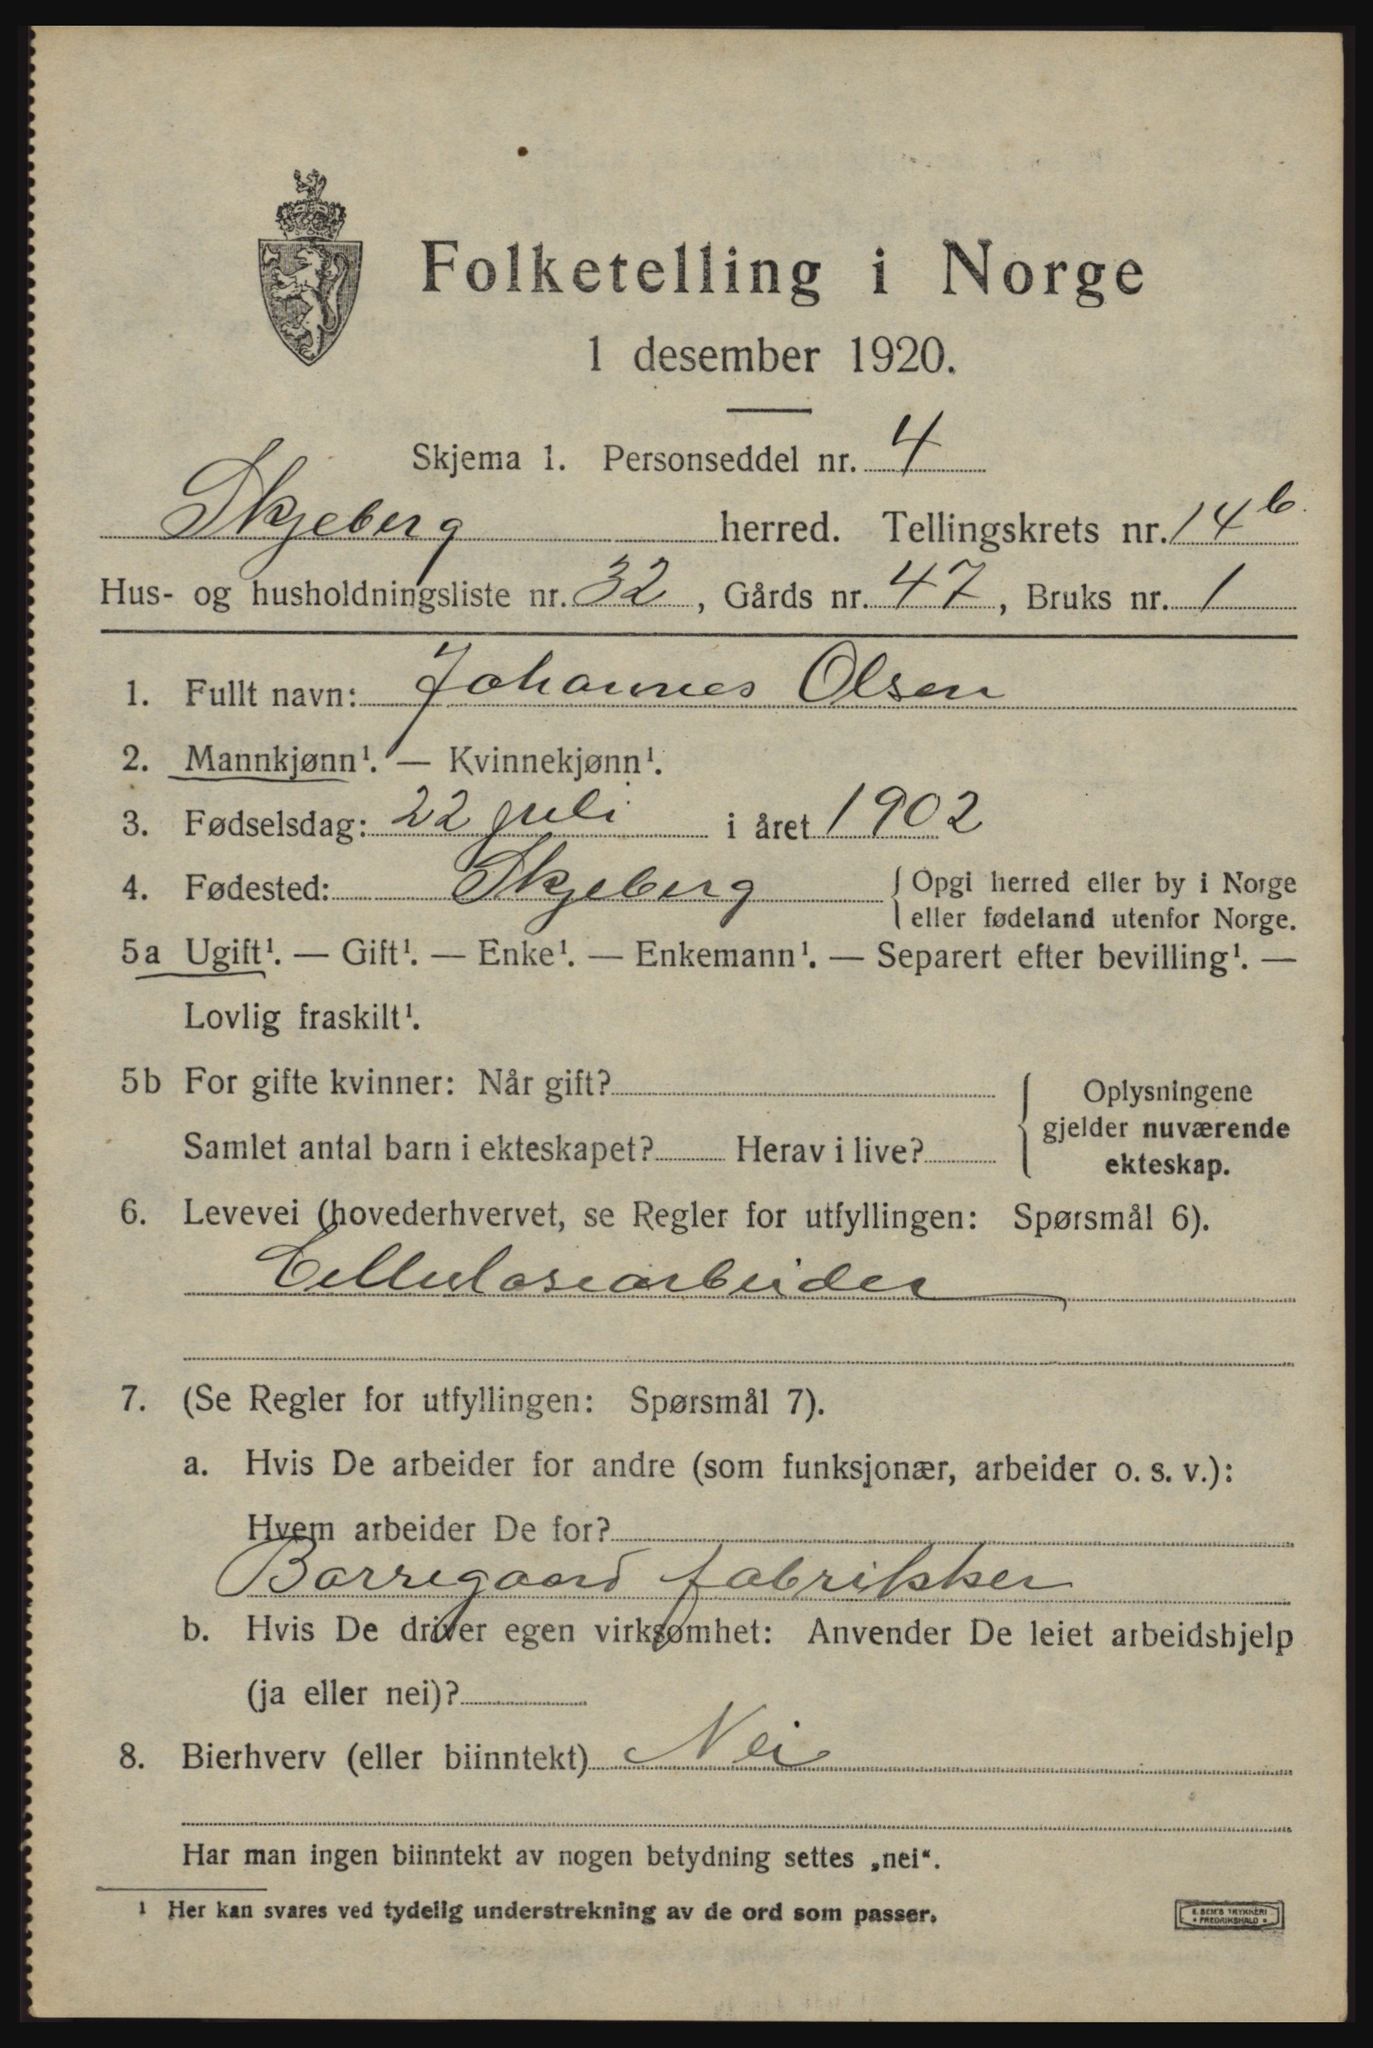 Folketelling i Norge
1 desember 1920.
Skjema 1. Personseddel nr. 4
Skjeberg herred. Tellingskrets nr. 14b
Hus- og husholdningsliste nr. 32, Gårds nr. 47, Bruks nr. 1
1. Fullt navn: Johannes Olsen
2. Mannkjønn¹. — Kvinnekjønn¹.
3. Fødselsdag: 22 juli i året 1902
4. Fødested: Skjeberg { Opgi herred eller by i Norge
eller fødeland utenfor Norge.
5a Ugift¹. — Gift¹. — Enke¹. — Enkemann¹. — Separert efter bevilling¹. —
Lovlig fraskilt¹.
5b For gifte kvinner: Når gift? { Oplysningene
gjelder nuværende
Samlet antal barn i ekteskapet? Herav i live? ekteskap.
6. Levevei (hovederhvervet, se Regler for utfyllingen: Spørsmål 6).
Cellulosearbeider
7. (Se Regler for utfyllingen: Spørsmål 7).
a. Hvis De arbeider for andre (som funksjonær, arbeider o. s. v.):
Hvem arbeider De for?
Borregaard fabrikker
b. Hvis De driver egen virksomhet: Anvender De leiet arbeidshjelp
(ja eller nei)?
8. Bierhverv (eller biinntekt) Nei
Har man ingen biinntekt av nogen betydning settes „nei“.
¹ Her kan svares ved tydelig understrekning av de ord som passer.
E. SEM'S TRYKKERI
FREDRIKSHALD